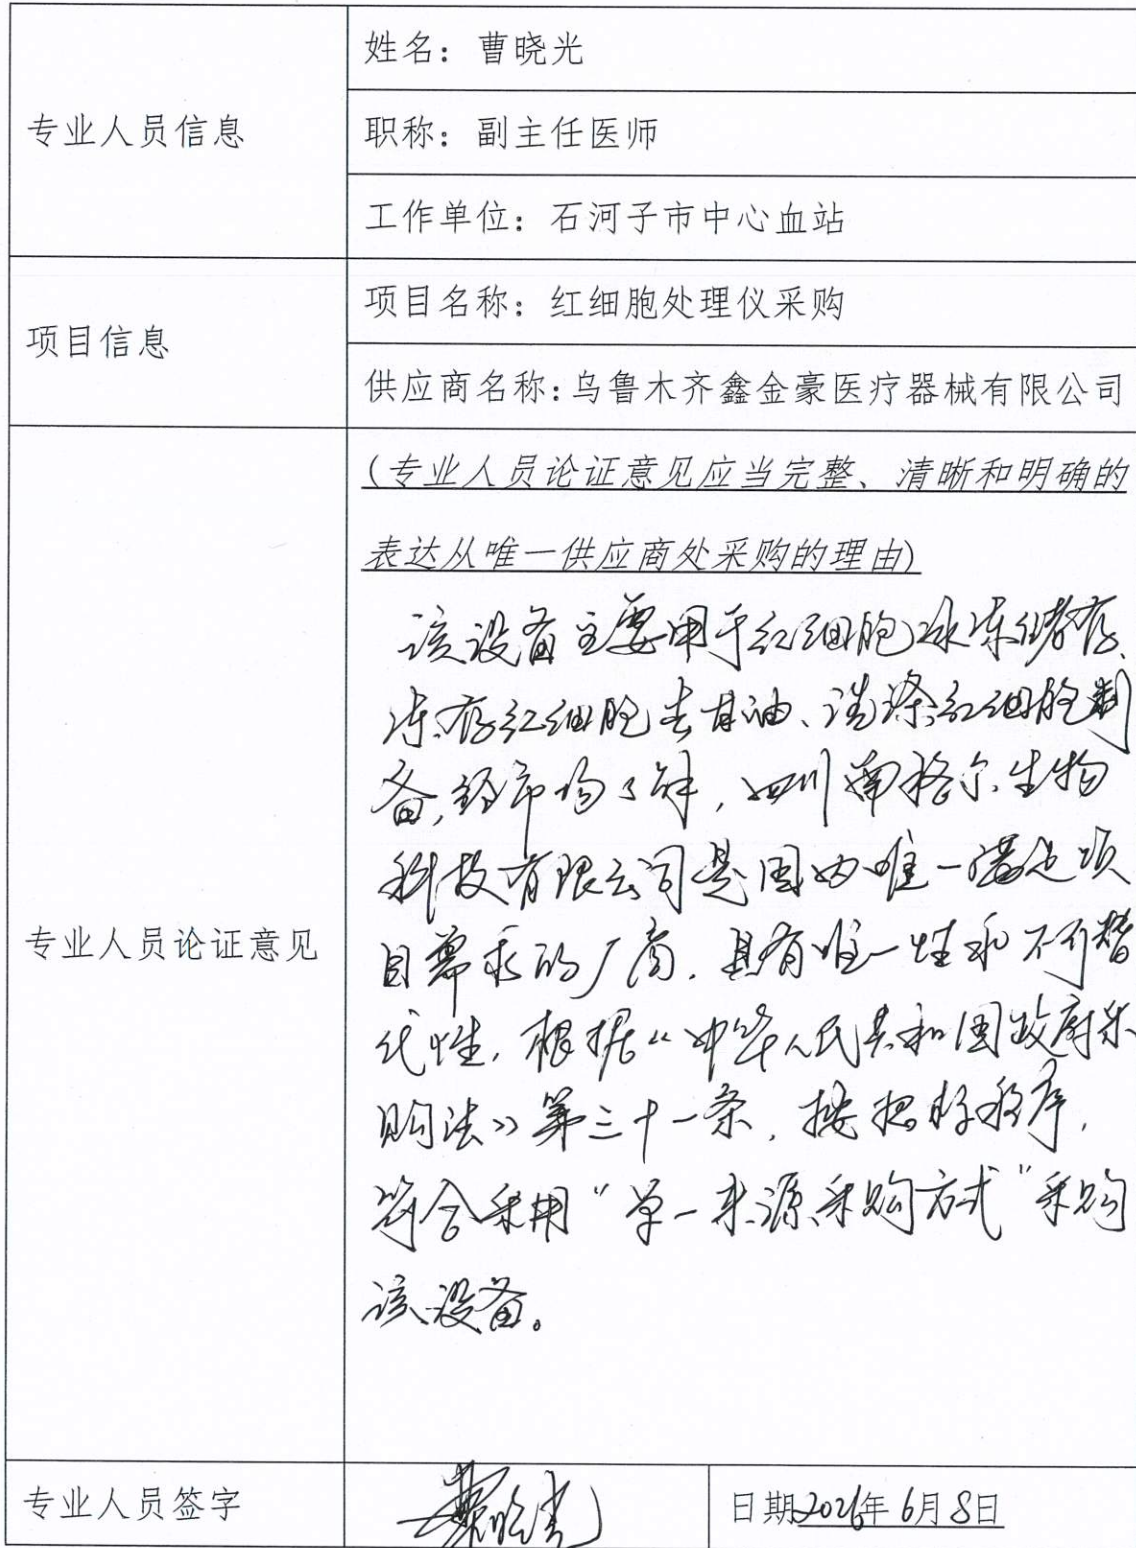 专业人员信息
姓名：曹晓光
职称：副主任医师
工作单位：石河子市中心血站
项目信息
项目名称：红细胞处理仪采购
供应商名称：乌鲁木齐鑫金豪医疗器械有限公司
专业人员论证意见
(专业人员论证意见应当完整、清晰和明确的
表达从唯一供应商处采购的理由)
该设备主要用于红细胞冰冻储存、
冻存红细胞去甘油、洗涤红细胞制
备,经市场了解,四川南格尔生物
科技有限公司是国内唯一满足项
目需求的厂商,具有唯一性和不可替
代性,根据《中华人民共和国政府采
购法》第三十一条,按照程序,
符合采用“单一来源采购方式”采购
该设备。
专业人员签字
曹晓光
日期 年6月8日